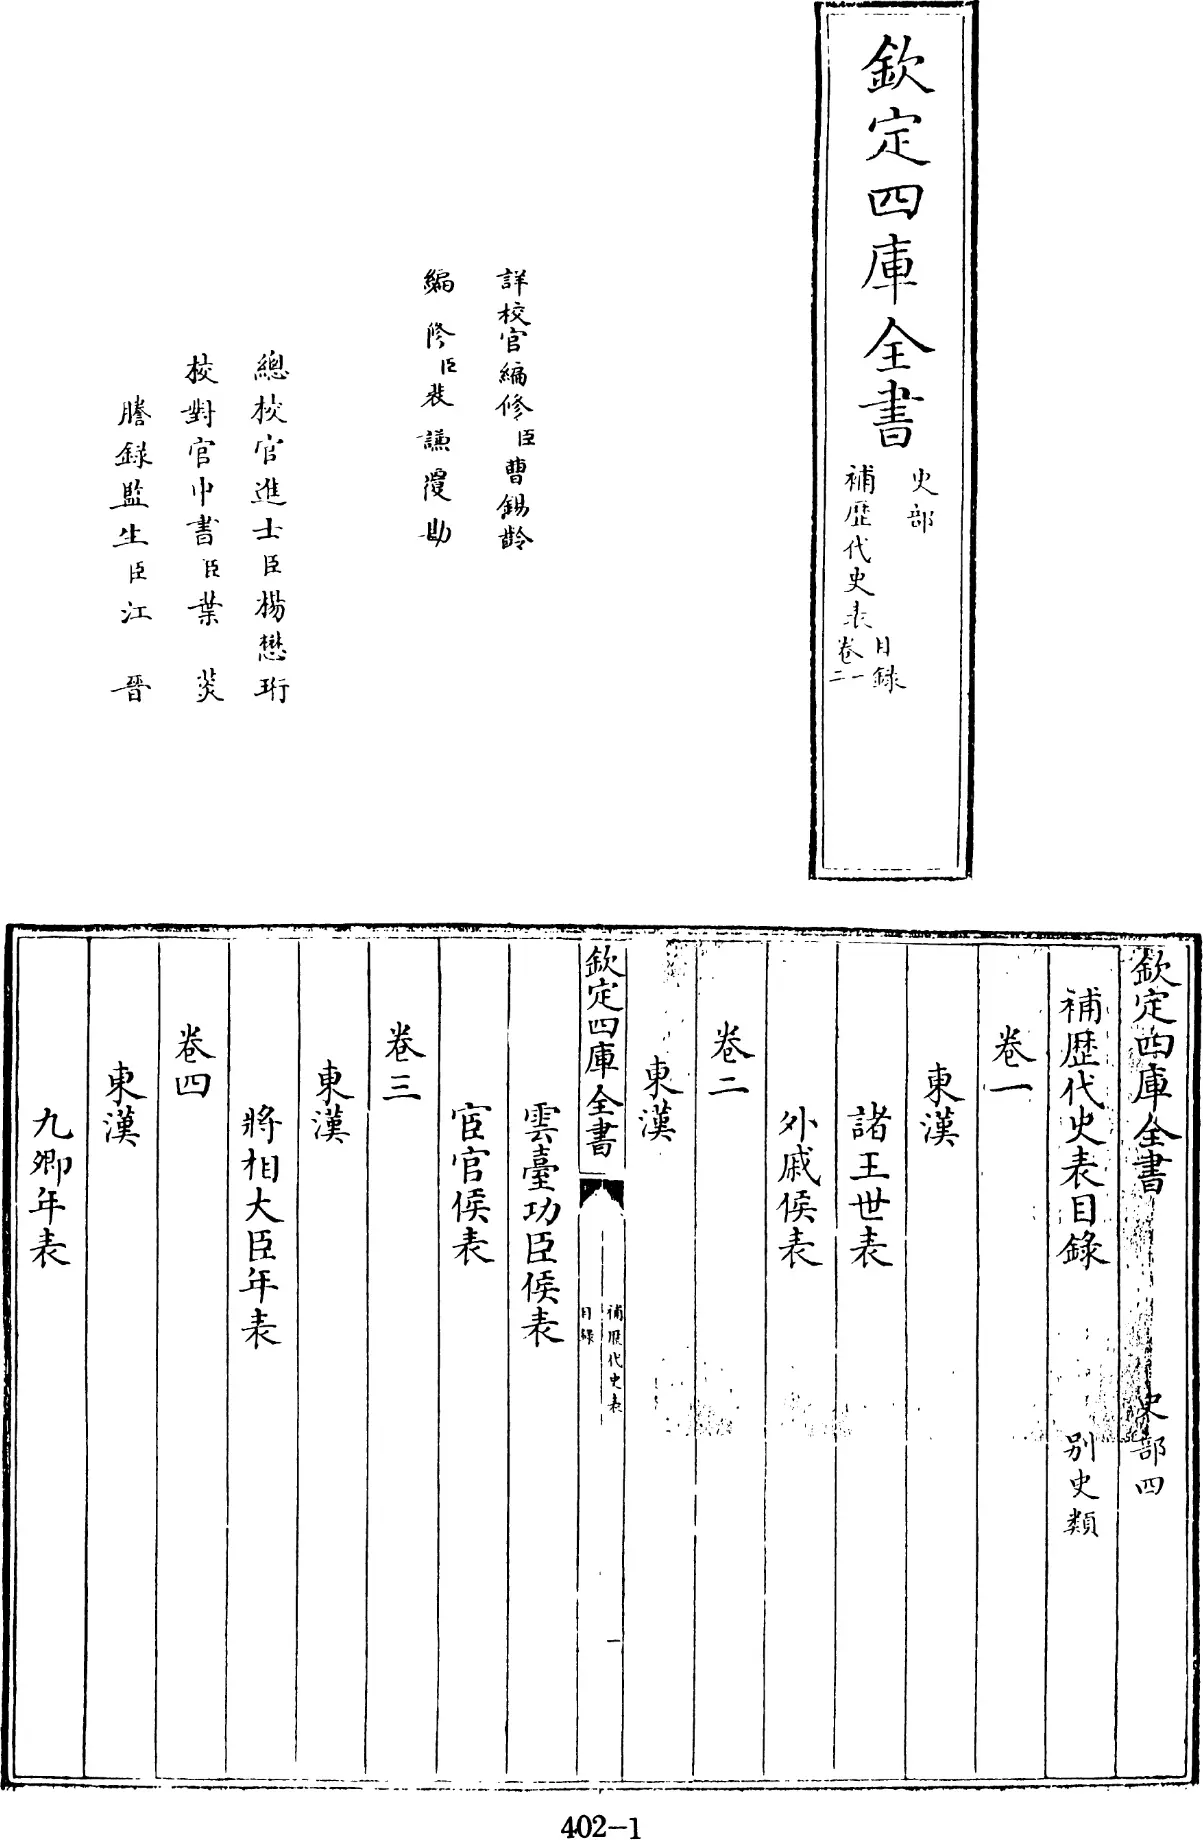 欽定四庫全書
史部
補歷代史表
目錄
卷一
二
詳校官編修臣曹錫齡
編修臣裴謙覆勘
總校官進士臣楊懋珩
校對官中書臣葉菼
謄錄監生臣江晉
欽定四庫全書 史部四
補歷代史表目錄 別史類
卷一
東漢
諸王世表
外戚侯表
卷二
東漢
欽定四庫全書
補歷代史表
目錄
一
雲臺功臣侯表
宦官侯表
卷三
東漢
將相大臣年表
卷四
東漢
九卿年表
402-1